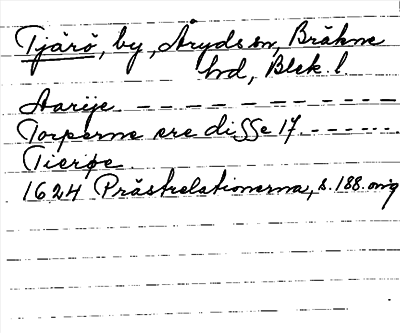 Tjärö, by, Åryds sn, Bräkne
hd, Blek. l.
Aarije - - - - - - - - - -
Torperne ere disse 17. - - - - - -
Tierøe.
1624 Prästrelationerna, s. 188. orig